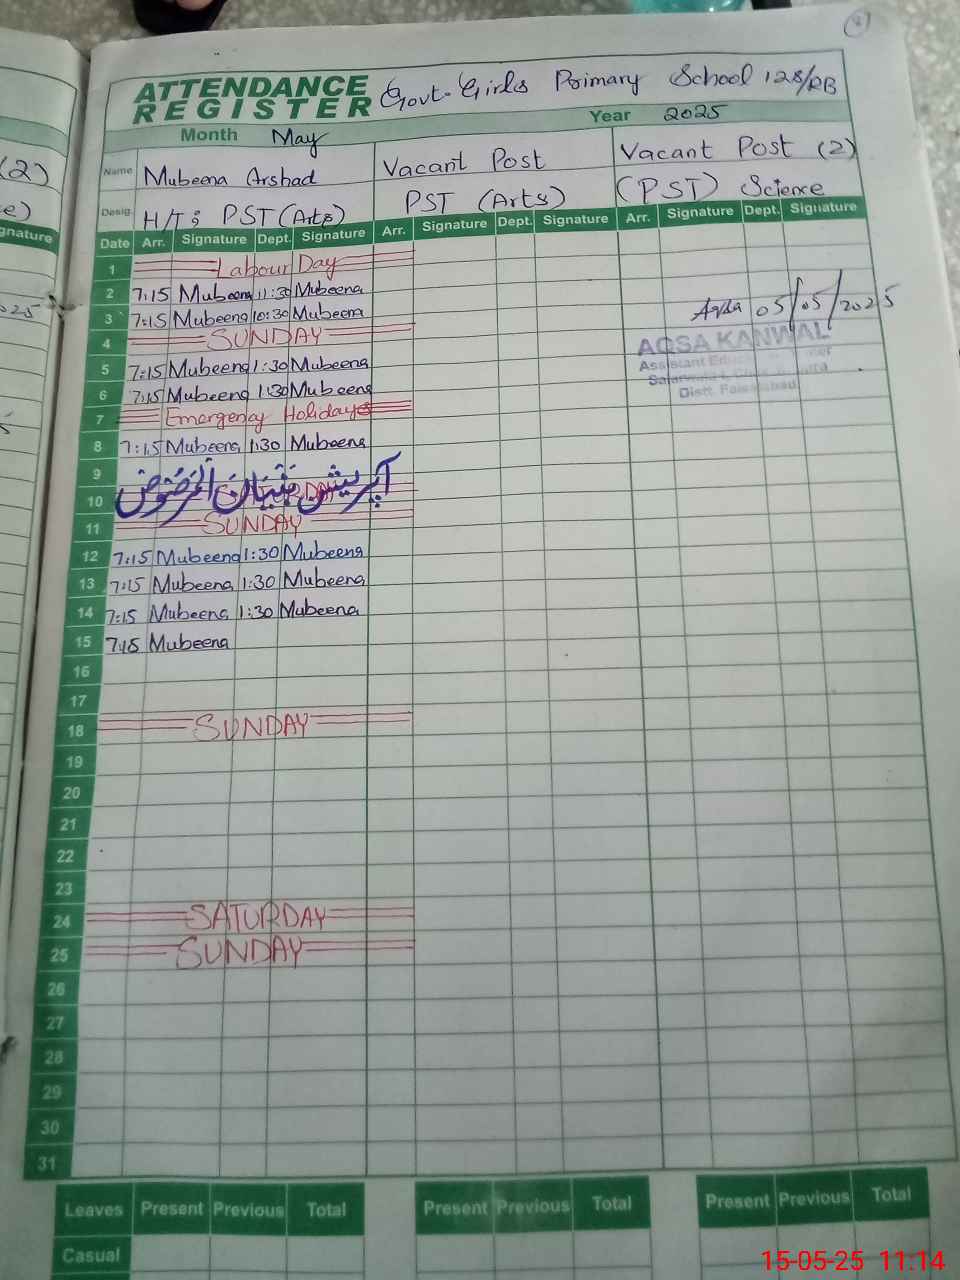 (8)
ATTENDANCE REGISTER Govt. Girls Primary School 128/RB
Month May Year 2025
(2)
Name Mubeena Arshad Vacant Post Vacant Post (2)
Desig. H/T; PST (Arts) PST (Arts) (PST) Science
Date Arr. Signature Dept. Signature Arr. Signature Dept. Signature Arr. Signature Dept. Signature
1 Labour Day
2 7:15 Mubeena 11:30 Mubeena
3 7:15 Mubeena 10:30 Mubeena
Aqsa 05/05/2025
4 SUNDAY
AQSA KANWAL
5 7:15 Mubeena 1:30 Mubeena
Assistant
6 7:15 Mubeena 1:30 Mubeena
Distt. Faisalabad
7 Emergency Holidays
8 7:15 Mubeena 1:30 Mubeena
9
10 آپریشن بنیان المرصوص
11 SUNDAY
12 7:15 Mubeena 1:30 Mubeena
13 7:15 Mubeena 1:30 Mubeena
14 7:15 Mubeena 1:30 Mubeena
15 7:15 Mubeena
16
17
18 SUNDAY
19
20
21
22
23
24 SATURDAY
25 SUNDAY
26
27
28
29
30
31
Leaves Present Previous Total Present Previous Total Present Previous Total
Casual
15-05-25 11:14